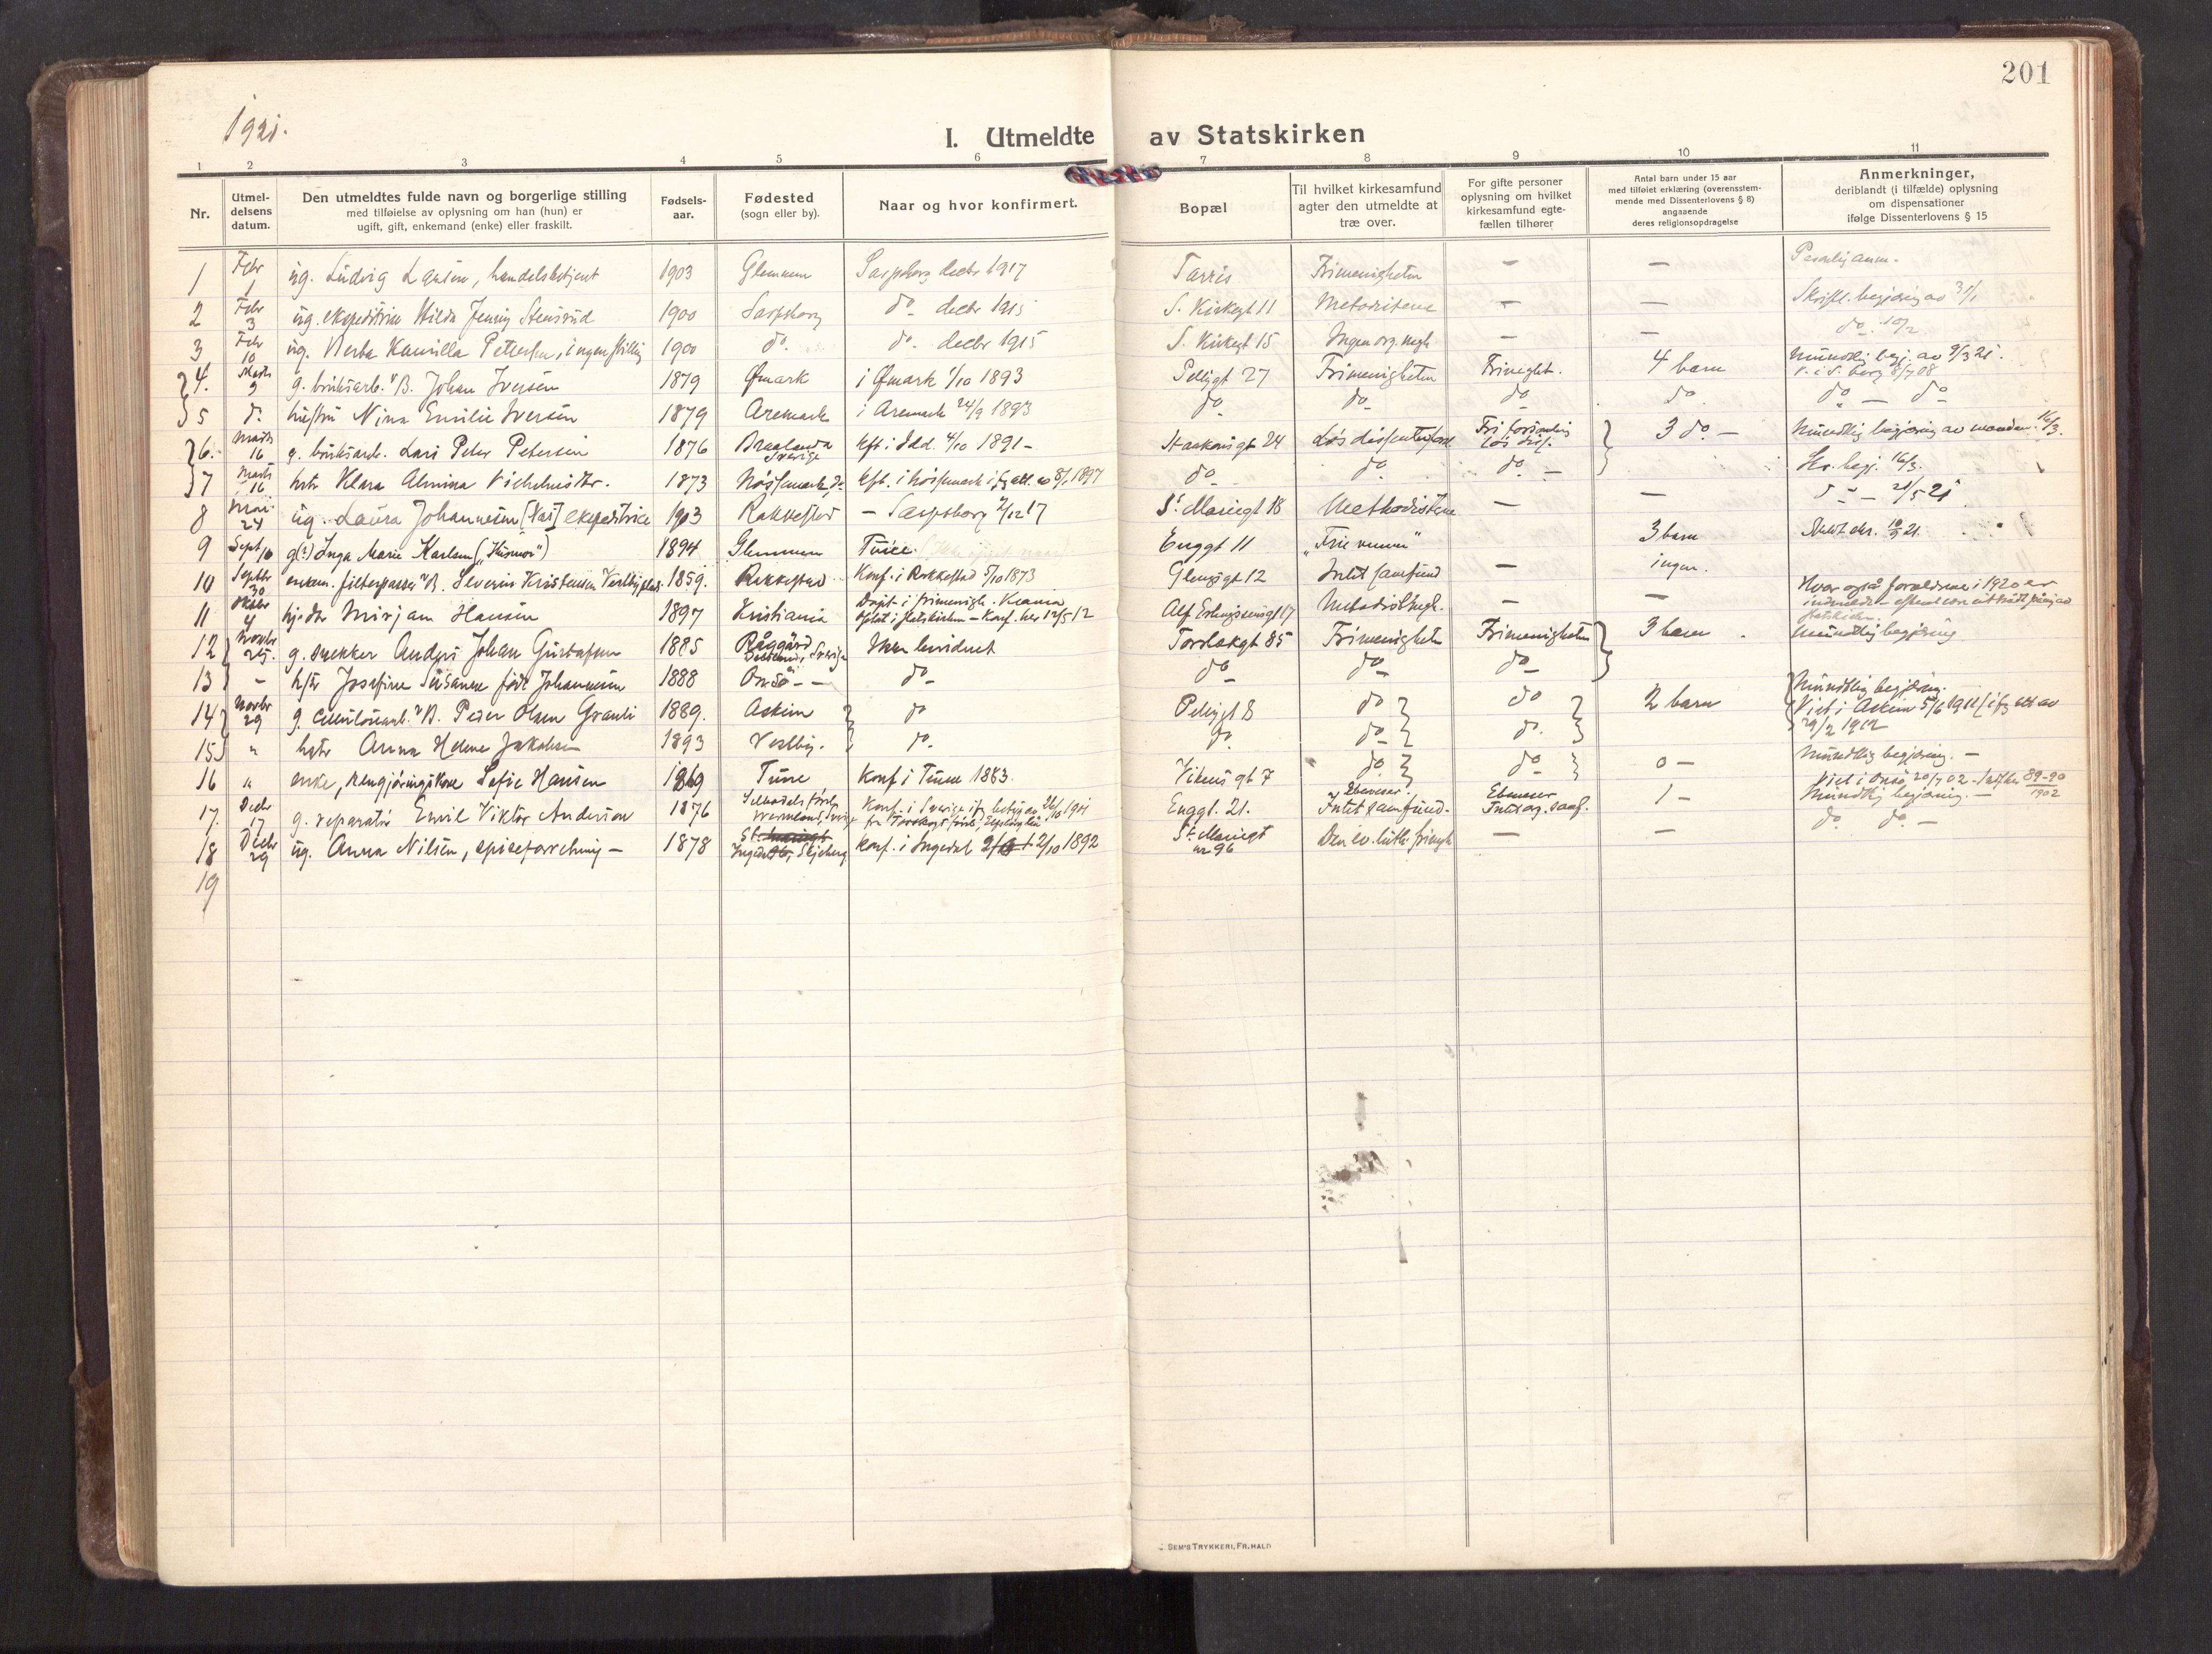 201
1921.
I. Utmeldte av Statskirken
1 2 3 4 5 6 7 8 9 10 11
Nr.
Utmel-
delsens
datum.
Den utmeldtes fulde navn og borgerlige stilling
med tilføielse av oplysning om han (hun) er
ugift, gift, enkemand (enke) eller fraskilt.
Fødsels-
aar.
Fødested
(sogn eller by).
Naar og hvor konfirmert.
Bopæl
Til hvilket kirkesamfund
agter den utmeldte at
træ over.
For gifte personer
oplysning om hvilket
kirkesamfund egte-
fællen tilhører
Antal barn under 15 aar
med tilføiet erklæring (overensstem-
mende med Dissenterlovens § 8)
angaaende
deres religionsopdragelse
Anmerkninger,
deriblandt (i tilfælde) oplysning
om dispensationer
ifølge Dissenterlovens § 15
1 Febr 1 ug. Ludvig Larsen, handelsbetjent 1903 Glemmen Sarpsborg decbr 1917 Tarris Frimenigheten — —
2 Febr 3 ug. ekspeditrice Hilda Jenny Stensrud 1900 Sarpsborg do - decbr 1915 S. Kirkegt 11 Metodistene — — Skriftl. begjæring av 31/1
3 Febr 10 ug. Kamilla Pettersen, ingen stilling 1900 do. do. decbr 1915 S. Kirkegt 15 Ingen org. megh — — do. 10/2
4. Marts 9 g. bruksarb. v B. Johan Iversen 1879 Ømark i Ømark 1/10 1893 Pellygt 27 Frimenigheten Frimeght. 4 barn Mundtlig begj. av 9/3 21.
5 do. hustru Nina Emilie Iversen 1879 Aremark i Aremark 24/9 1893 do do do do do — do
6. Marts 16 g. bruksarb. Lars Peter Petersen 1876 Sverige kft. i Idd 4/10 1891 - Haakonsgt 24 Løs 3 do. — Mundtlig begjæring av manden 16/3.
7 Marts 16 hstr Klara Almina 1873 do do do — 16/3.
8 Mai 24 ug. Laura Johannesen [Vas] ekspeditrice 1903 Rakkestad — Sarpsborg 2/12 17 St. Mariegt 18 Methodistene — — do - 21/5 21
9 Sept 10 g(?) Inga Marie Karlsen ("Husmor") 1894 Glemmen Tune. Enggt 11 "Frie venner" 3 barn
10 Septbr 30 enkem. filterpasser v B. Severin Kristensen Vestbyplads 1859. Rakkestad Konf. i Rakkestad 5/10 1873 Glengsgt 12 Intet samfund — ingen.
11 Oktbr 4 hj.dtr Mirjam Hansen 1897 Kristiania Døpt i frimenigh. Krania
Konf. her 12/5 12 Alf Erlingsensgt 17 Metodistmegh. — — Hvor også forældrene i 1920 er
12 Novbr 25. g. snekker Anders Johan Gustafsen 1885 Sverige Ikke Torlaksgt 85 Frimenigheten Frimenigheten 3 barn. Mundtlig begjæring
13 - hstr Josefine Susanne født Johannesen 1888 Onsø - — do - do - do - do -
14 Novbr 29 g. cellulosearb. v B. Peder Olsen Granli 1889. Askim do Pellygt 8 do do 2 barn Mundtlig begjæring.
Viet i Askim 5/6 1911
29/2 1912
15 " hstr Anna Helene Jakobsen 1893 Vestby. do. do. do - do.
16 " enke, rengjøringskone Sofie Hansen 1869 Tune Konf i Tune 1883. Vikensgt 7 do do - 0 — Mundtlig begjæring. —
17. Decbr 17 g. reparatør Emil Viktor Anderson 1876 Konf. i Sverige Enggt. 21. Ebeneser.
Intet samfund. Ebeneser 1 - Viet i Onsø 20/7 02.
Mundtlig begjæring. —
18 Decbr 29 ug. Anna Nilsen, spiseforretning — 1878 Skjeberg Konf. i Ingedal 2/10 1892 St. Mariegt
nr 96 Den ev. luth. frimgh — — do. do. —
19
SEM'S TRYKKERI, FR.HALD